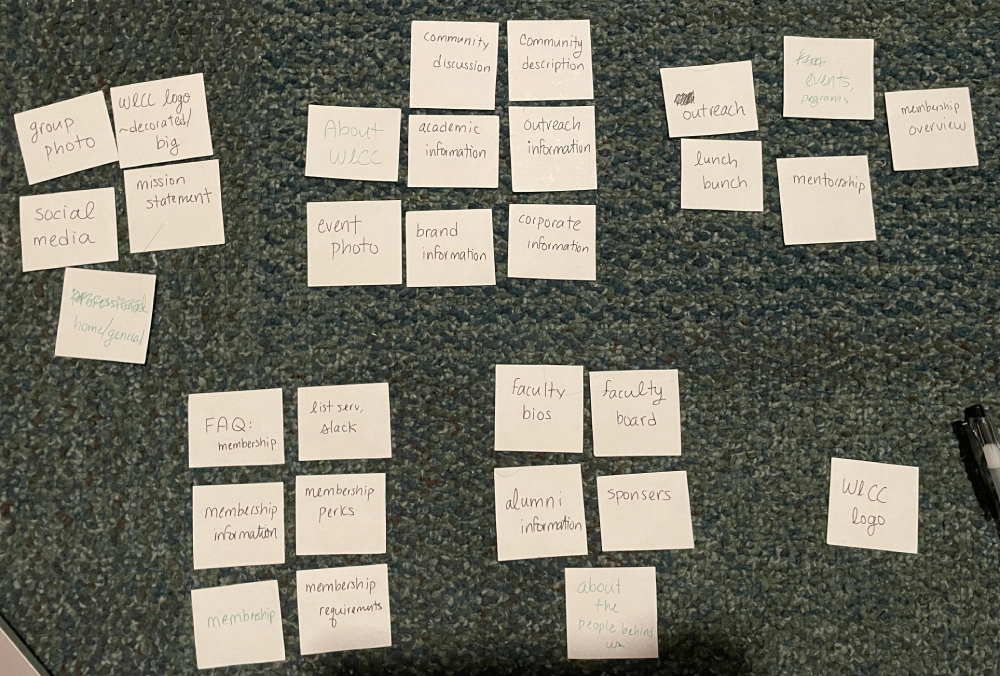 group
photo
WLCC logo
~decorated/
big
social
media
mission
statement
Professional
home/general
community
discussion
Community
description
About
WLCC
academic
information
outreach
information
event
photo
brand
information
corporate
information
outreach
events,
programs
membership
overview
lunch
bunch
mentorship
FAQ:
membership
list serv,
slack
membership
information
membership
perks
membership
membership
requirements
faculty
bios
faculty
board
alumni
information
sponsers
about
the
people behind
us
WLCC
logo